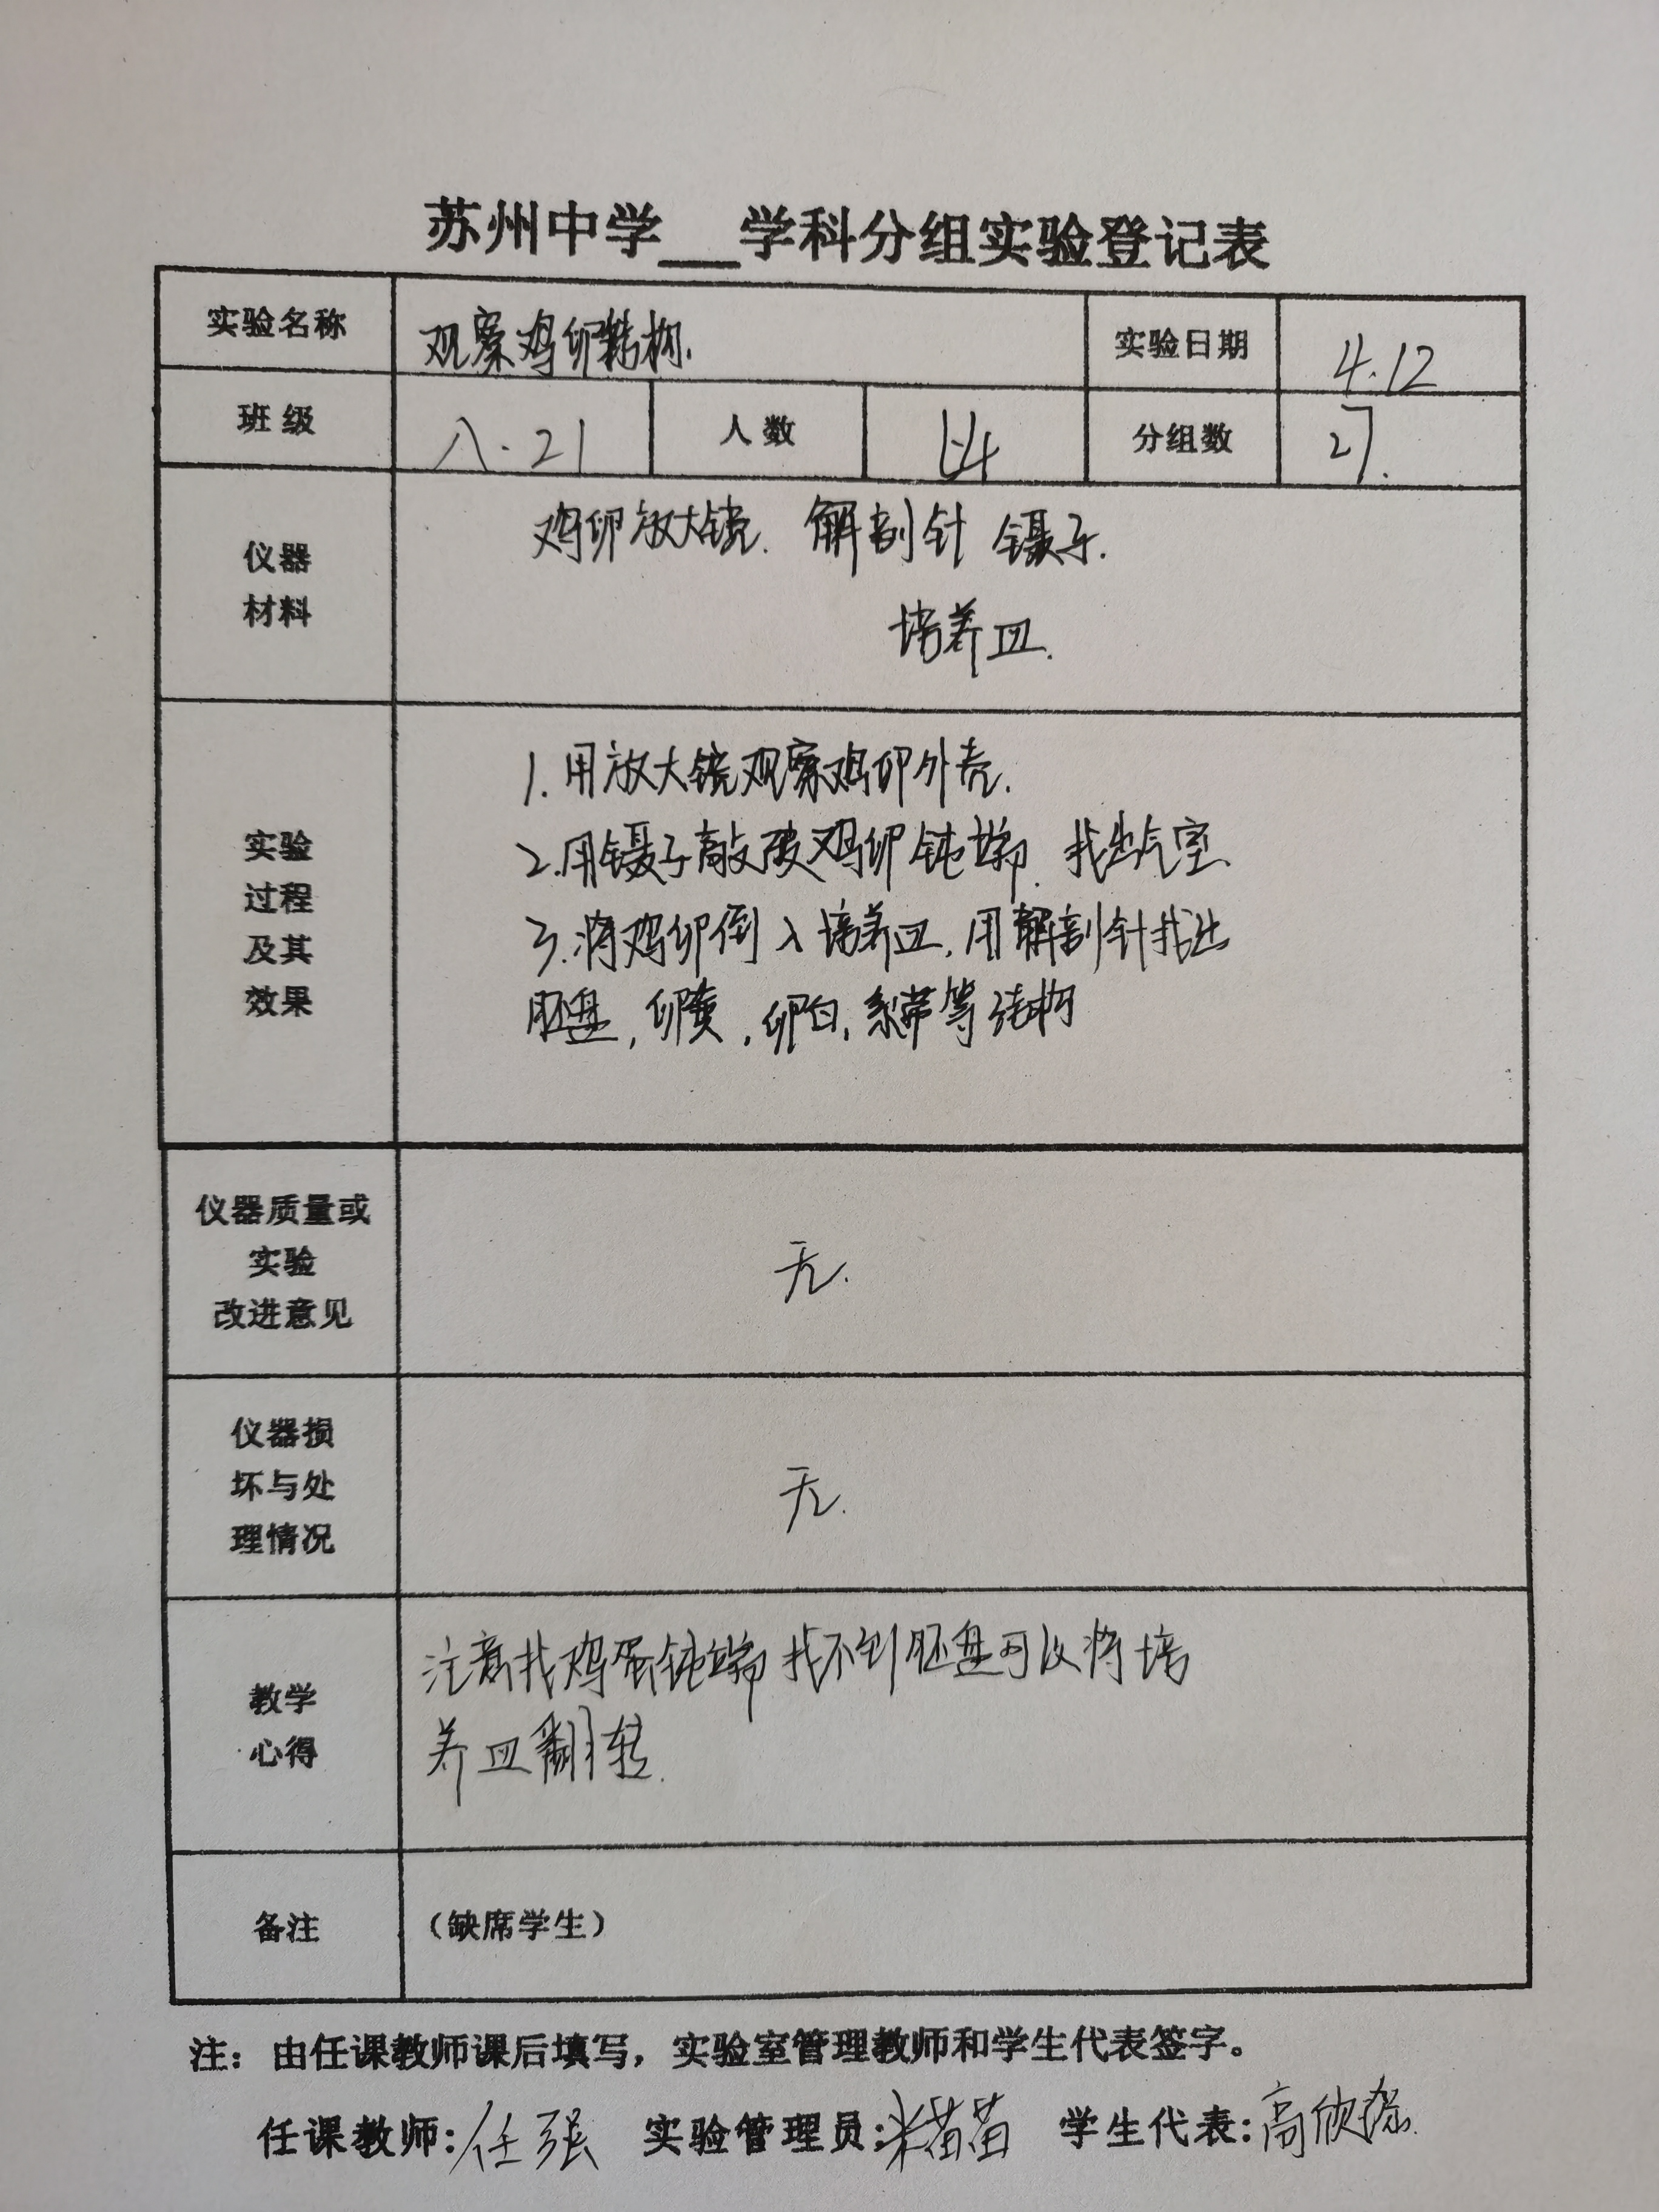 苏州中学___学科分组实验登记表
实验名称 观察鸡卵结构. 实验日期 4.12
班级 八.21 人数 54 分组数 27.
仪器
材料
鸡卵放大镜. 解剖针 镊子.
培养皿.
实验
过程
及其
效果
1.用放大镜观察鸡卵外壳.
2.用镊子敲破鸡卵钝端. 找出气室.
3.将鸡卵倒入培养皿,用解剖针找出
胚盘,卵黄,卵白,系带等结构
仪器质量或
实验
改进意见
无.
仪器损
坏与处
理情况
无.
教学
心得
注意找鸡蛋钝端 找不到胚盘可以将培
养皿翻转.
备注 (缺席学生)
注：由任课教师课后填写，实验室管理教师和学生代表签字。
任课教师:任强 实验管理员:米苗苗 学生代表:高欣